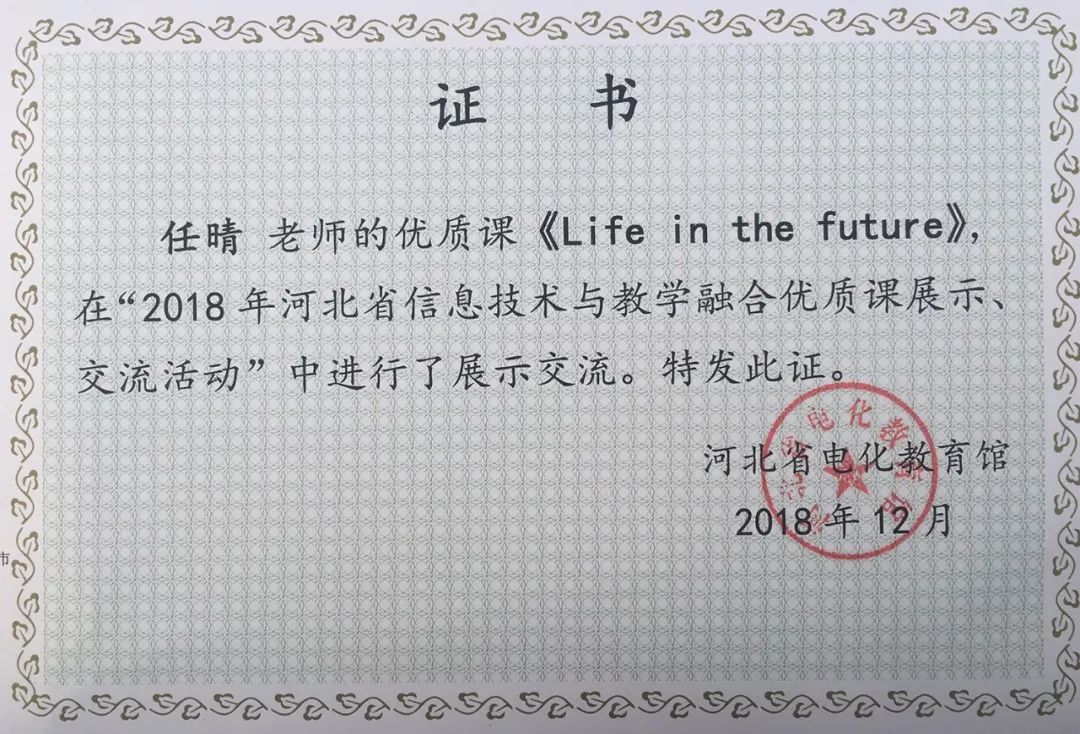 证 书
任晴 老师的优质课《Life in the future》，
在“2018年河北省信息技术与教学融合优质课展示、
交流活动”中进行了展示交流。特发此证。
河北省电化教育馆
2018年12月
河北省电化教育馆
市